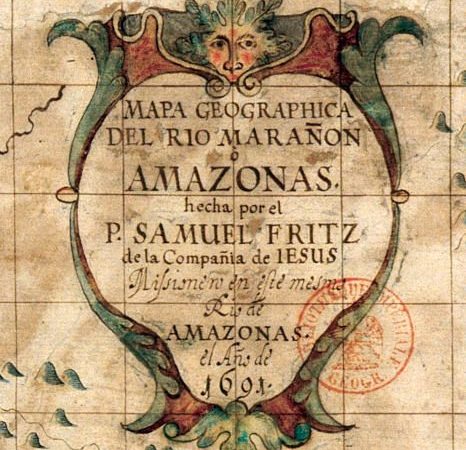 MAPA GEOGRAPHICA
DEL RIO MARAÑON
ô
AMAZONAS.
hecha por el
P. SAMUEL FRITZ
de la Compañia de IESUS
Missionero en este mesmo
Rio de
AMAZONAS.
el Año de
1691.
GEOGR